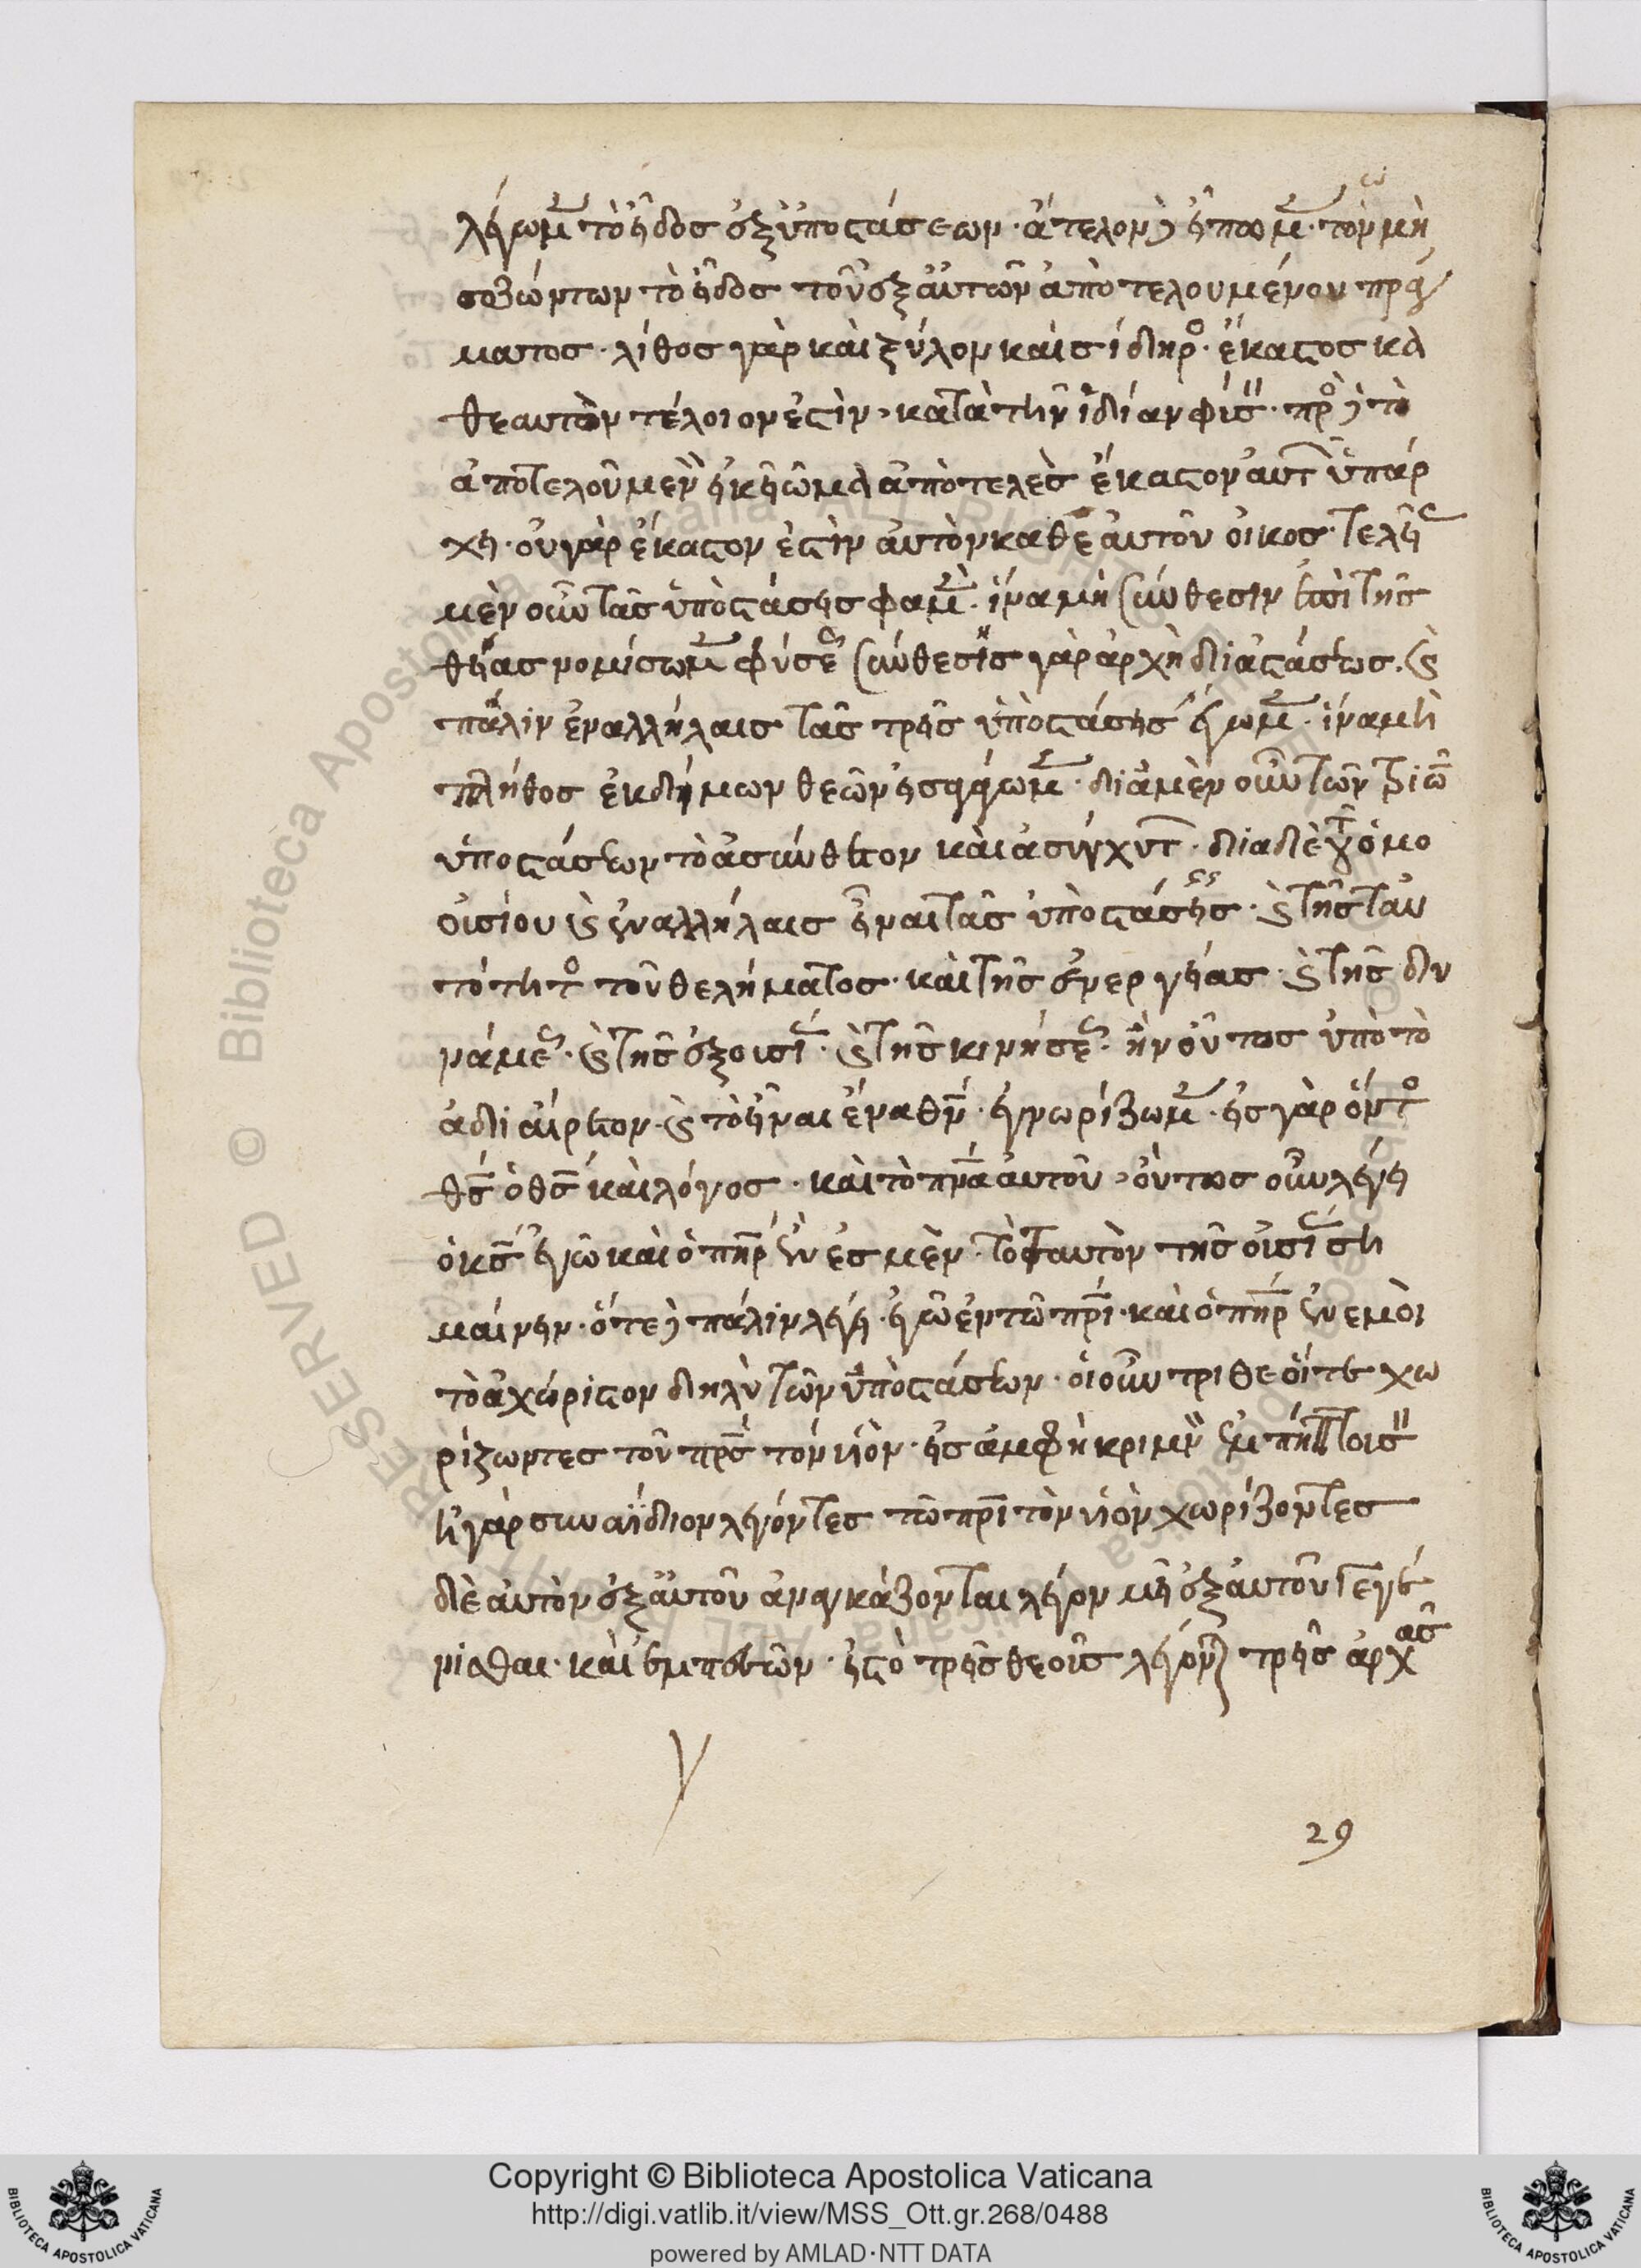 λέγωμεν τὸ εἶδος ἐξ ὑποστάσεων· ἀτελὲς δὲ εἴπωμεν· τῶν μὴ
σωζώντων τὸ εἶδος τοῦ ἐξ αὐτῶν ἀποτελουμένου πράγ
ματος· λίθος γὰρ καὶ ξύλον καὶ σίδηρος· ἕκαστος κα
θεαυτὸν τέλειον ἐστὶν, κατὰ τὴν ἰδίαν φύσιν· πρὸς δὲ τὸ
ἀποτελούμενον οἴκημα ἀποτελὲς ἕκαστον αὐτῶν ὑπάρ
χει· οὐ γὰρ ἕκαστον ἐστὶν αὐτὸν καθ ἑαυτὸν οἶκος· τελείας
μὲν οὖν τὰς ὑποστάσεις φαμὲν· ἵνα μὴ σύνθεσιν ἐπὶ τῆς
θείας νομίσωμεν φύσεως σύνθεσις γὰρ ἀρχὴ διαστάσεως. καὶ
πάλιν ἐν ἀλλήλαις τὰς τρεῖς ὑποστάσεις λέγωμεν· ἵνα μὴ
πλήθος ἐκ δήμων θεῶν εἰσαγάγωμεν· διὰ μὲν οὖν τῶν τριῶν
ὑποστάσεων τὸ ἀσύνθετον καὶ ἀσύγχυτον· διὰ δὲ τοῦ ὁμο
ουσίου καὶ ἐν ἀλλήλαις εἶναι τὰς ὑποστάσεις· καὶ τῆς ταυ
τότητος τοῦ θελήματος· καὶ τῆς ἐνεργείας· καὶ τῆς δυ
νάμεως· καὶ τῆς ἐξουσίας· καὶ τῆς κινήσεως· ἢν οὕτως ὑπὸ τὸ
ἀδιαίρετον· καὶ τὸ εἶναι ἕνα θεὸν· γνωρίζωμεν· εἷς γὰρ ὄντως
θς ὁ θς καὶ λόγος· καὶ τὸ πνα αὐτοῦ, ὄντως οὖν λέγει
ὁ κς ἐγὼ καὶ ὁ πηρ ἓν ἐσμὲν· τὸ ταυτὸν τῆς οὐσίας ση
μαίνειν· ὅτε δὲ πάλιν λέγει· ἐγὼ ἐν τῶ πρι· καὶ ὁ πηρ ἐν ἐμοὶ
τὸ ἀχώριστον δηλοῖ τῶν ὑποστάσεων· οἱ οὖν τριθεοῖται χω
ρίζωντες τοῦ πρς τὸν υἱὸν· εἰς ἀμφὴ κριμν ἐμπίπτουσιν
ἢ γὰρ συναΐδιον λέγοντες τῶ πρι τὸν υἱὸν χωρίζοντες
δὲ αὐτὸν ἐξ αὐτοῦ ἀναγκάζονται λέγειν μὴ ἐξ αὐτοῦ γεγε
νῖσθαι· καὶ ἐμπεσεῖν· εἰς τὸ τρεῖς θεοὺς λέγειν καὶ τρεῖς ἀρχὰς
29
Copyright © Biblioteca Apostolica Vaticana
http://digi.vatlib.it/view/MSS_Ott.gr.268/0488
powered by AMLAD·NTT DATA